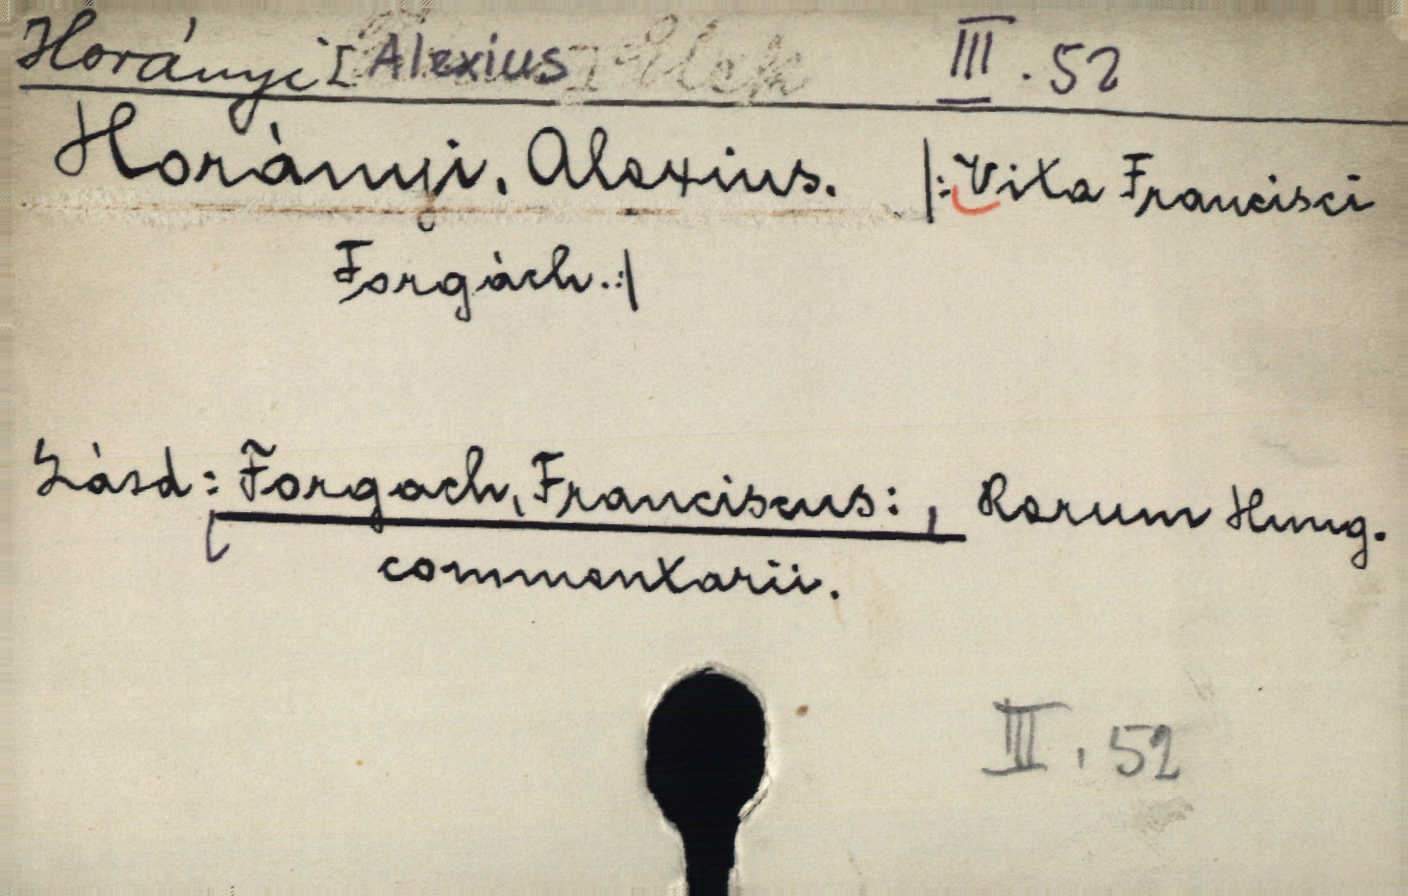 Horányi [Alexius] Elek III. 52
Horányi, Alexius. |: Vita Francisci
Forgách. :|
Lásd: Forgach, Franciscus: , Rerum Hung.
commentarii.
III. 52